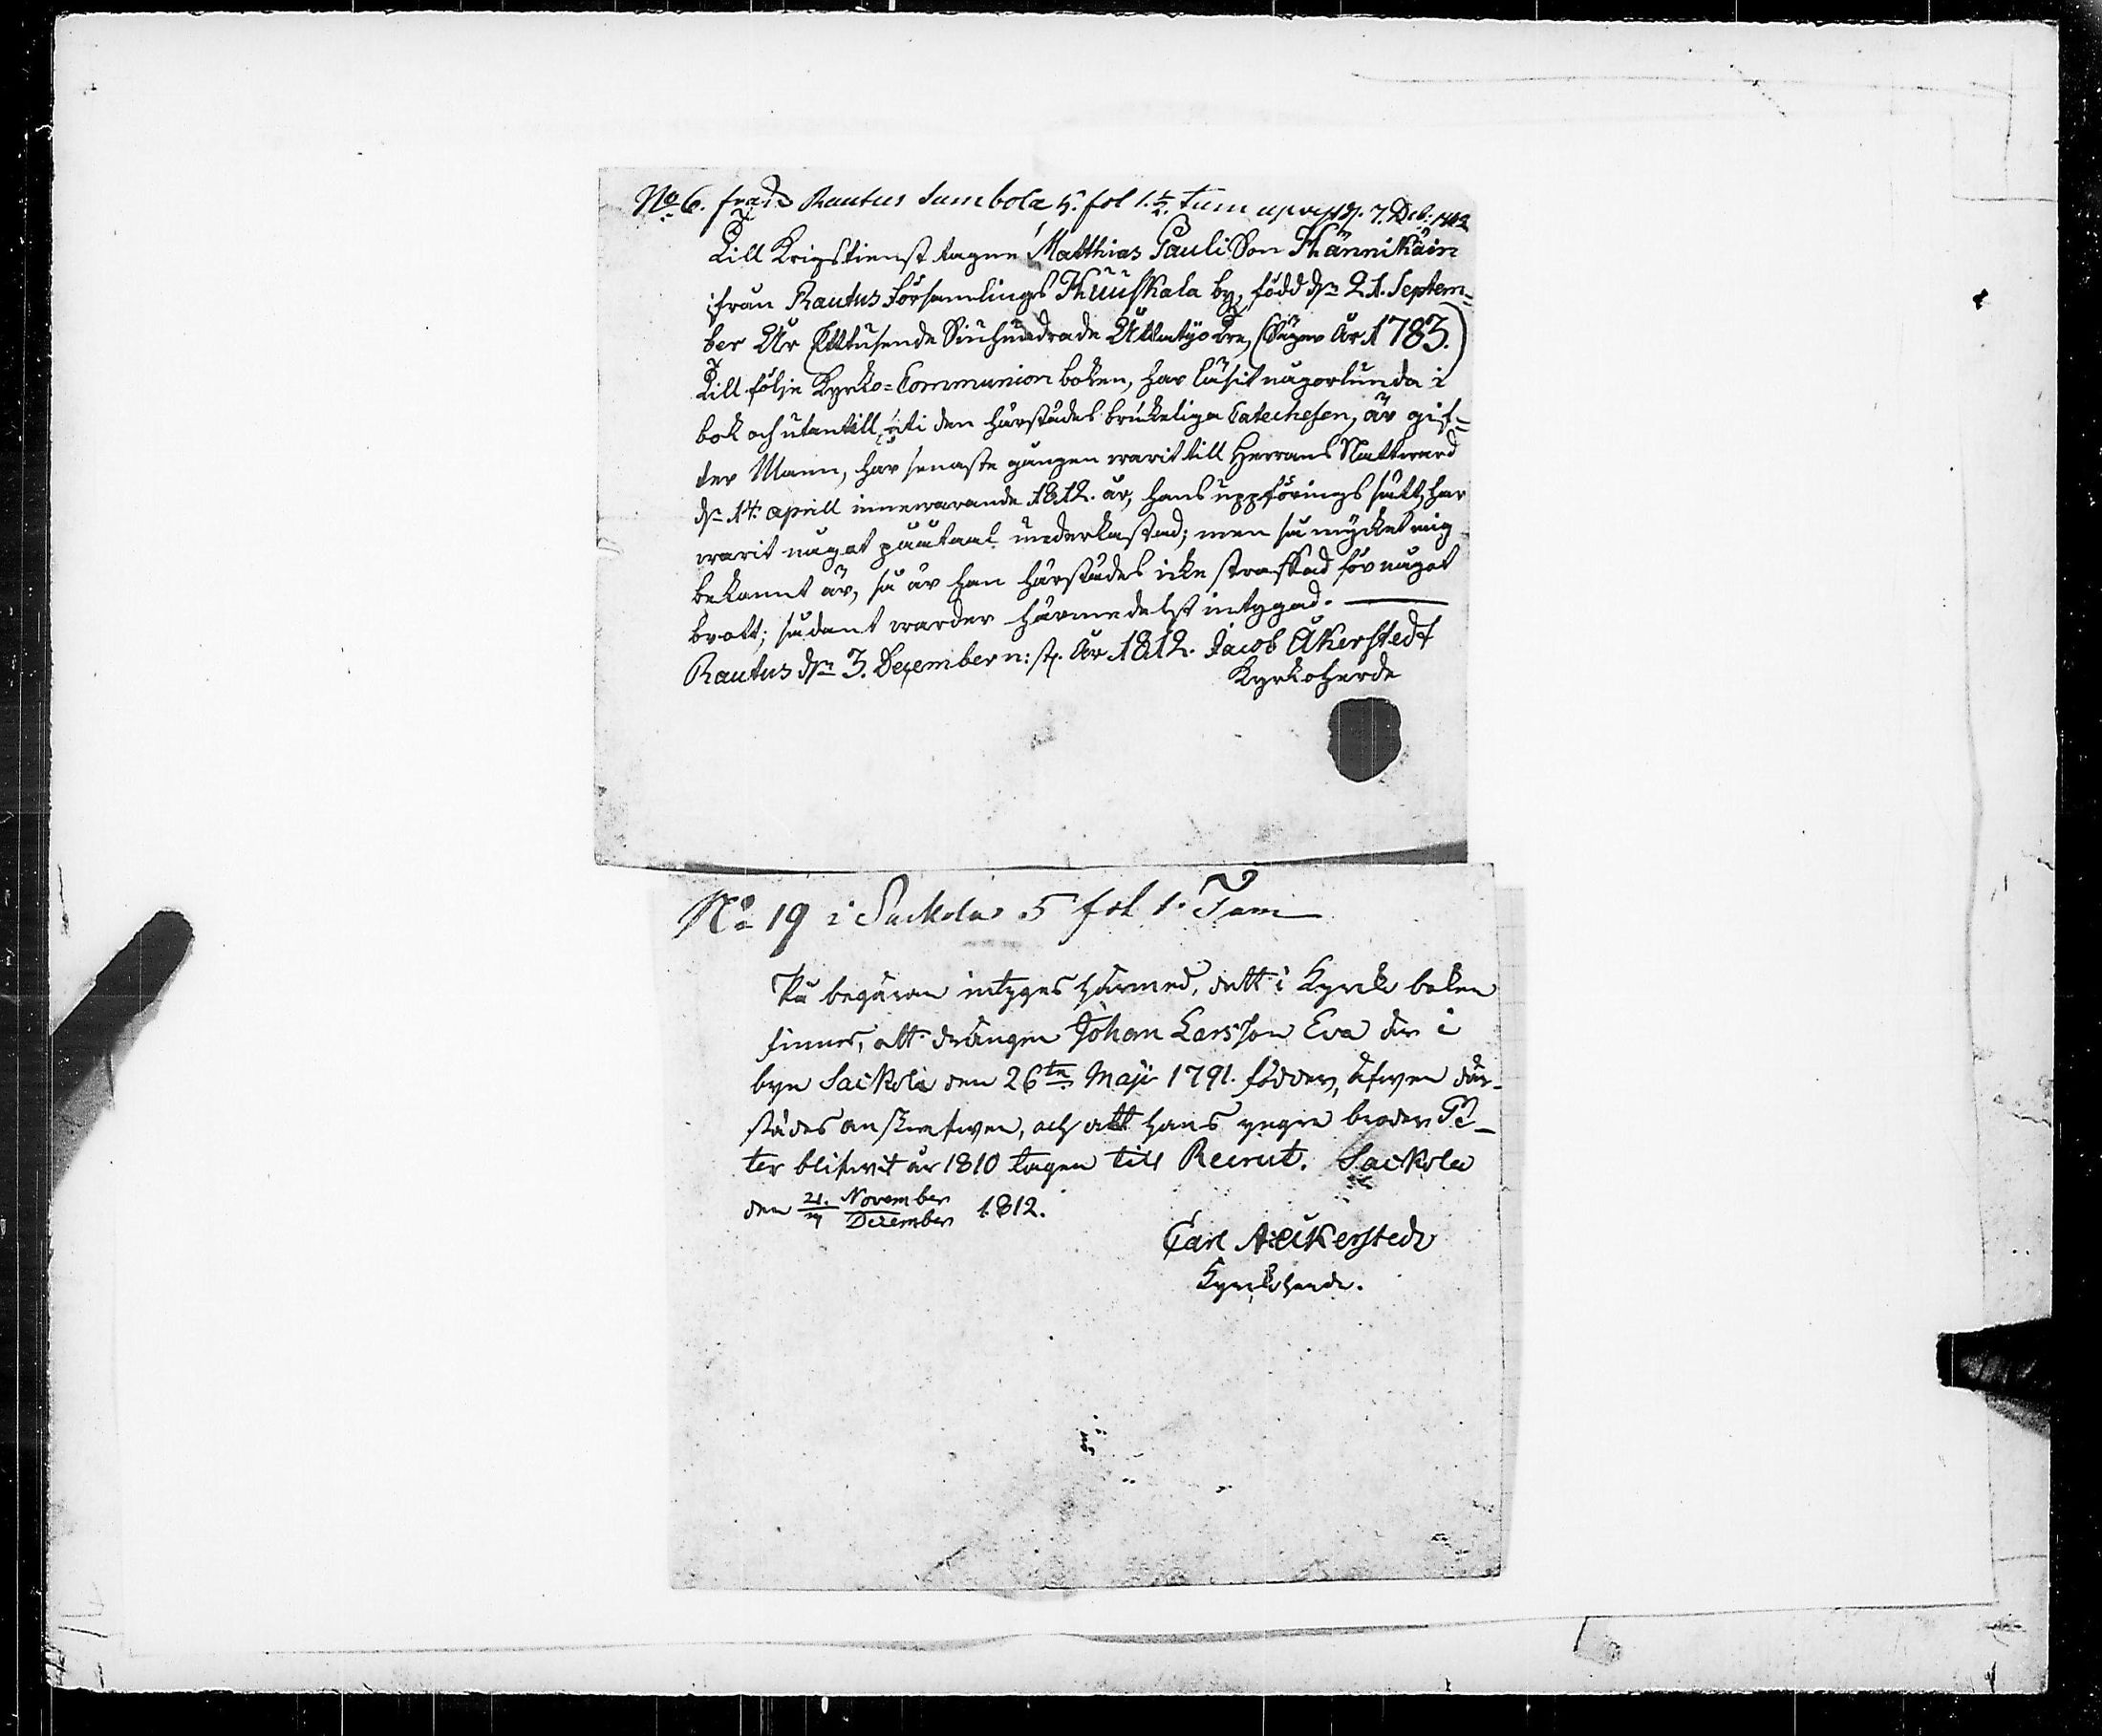 No 6. från Rautus Sumbola 5. fot 1.½. tum 7. Dec: 1812
Till Krigstienst tagne Matthias Pauli Son Hännikäin
ifrån Rautus Församlings Huuskala by, född dn 21. Septem=
ber År Ettusende Siuhundrade Åttatijo Tre, (Säger År 1783.)
Till följe Kyrko=Communion boken, har läsit någorlunda i
bok och utantill uti den härstädes brukeliga Catechesen, är gif=
ter Mann, har senaste gången warit till Herrans Nattward
dn 14. aprill innewarande 1812. år, hans uppförings sätt, har
warit något påataal underkastad; men så mycket mig
bekannt är, så är han härstädes icke straffad för något
brott; sådant warder härmedelst intygad.
Rautus dn 3. December n: st. År 1812. Jacob Åkerstedt
Kyrkoherde
No 19 i Sackola 5 fot 1. Tum
På begäran intyges härmed, att i Kyrko boken
finnes, att drängen Johan Larsson Eva är i
byn Sackola den 26te Maji 1791. födder, äfwen där-
städes anskrefwen, och att hans yngre broder Pe-
ter blifwit år 1810 tagen till Recrut. Sackola
den 21. November
December 1812.
Carl Aeükerstedt
Kyrkoherde.